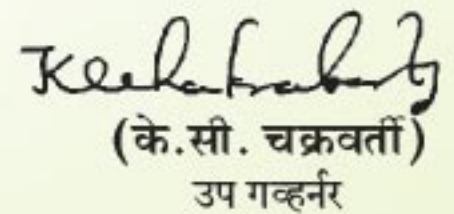 KCChakrabarty
(के.सी. चक्रवर्ती)
उप गव्हर्नर